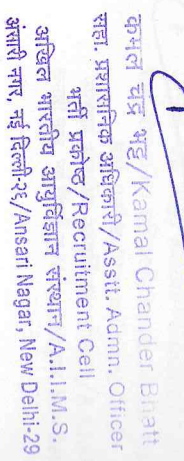 कमल चंद्र भट्ट/Kamal Chander Bhatt
सहा. प्रशासनिक अधिकारी/Asstt. Admn. Officer
भर्ती प्रकोष्ठ/Recruitment Cell
अखिल भारतीय आयुर्विज्ञान संस्थान/A.I.I.M.S.
अंसारी नगर, नई दिल्ली-29/Ansari Nagar, New Delhi-29